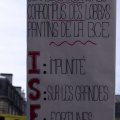 CORROMPUS DES LOBBYS
PANTINS DE LA BCE
I : MPUNITÉ
S : SUR LES GRANDES
F : FORTUNES